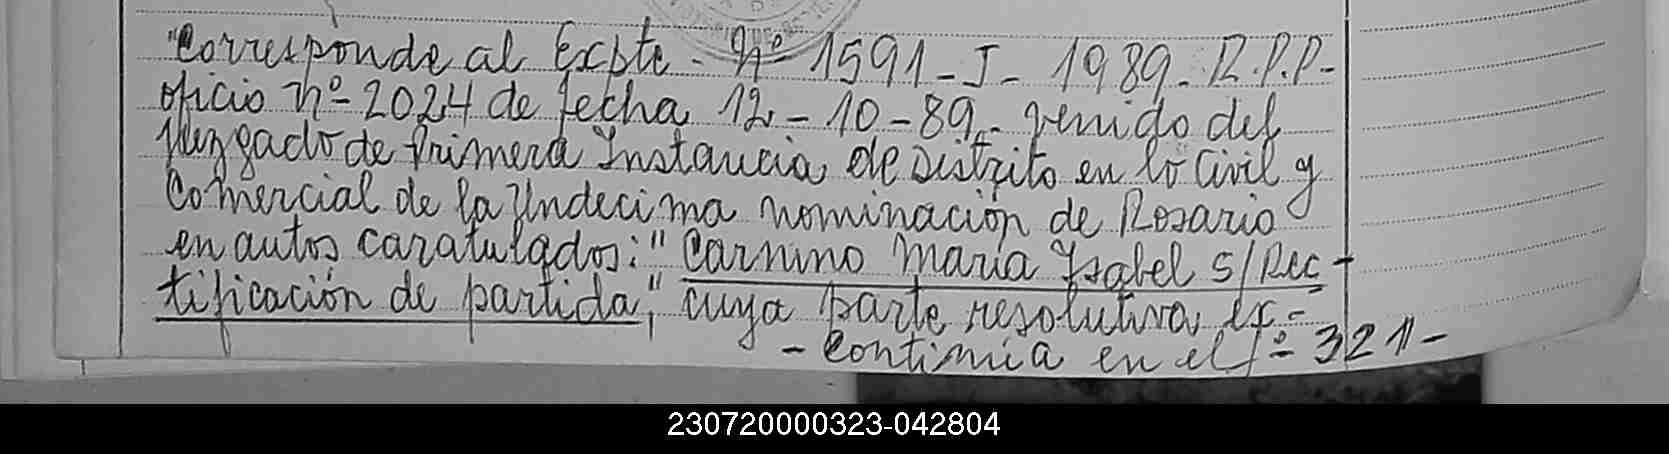 "Corresponde al Expte. Nº 1591-J-1989-R.P.P-
oficio nº 2024 de fecha 12-10-89, venido del
Juzgado de Primera Instancia de Distrito en lo Civil y
Comercial de la Undecima nominación de Rosario
en autos caratulados: "Carnino Maria Ysabel s/Rec-
tificación de partida", cuya parte resolutiva
- Continúa en el fº 321-
230720000323-042804